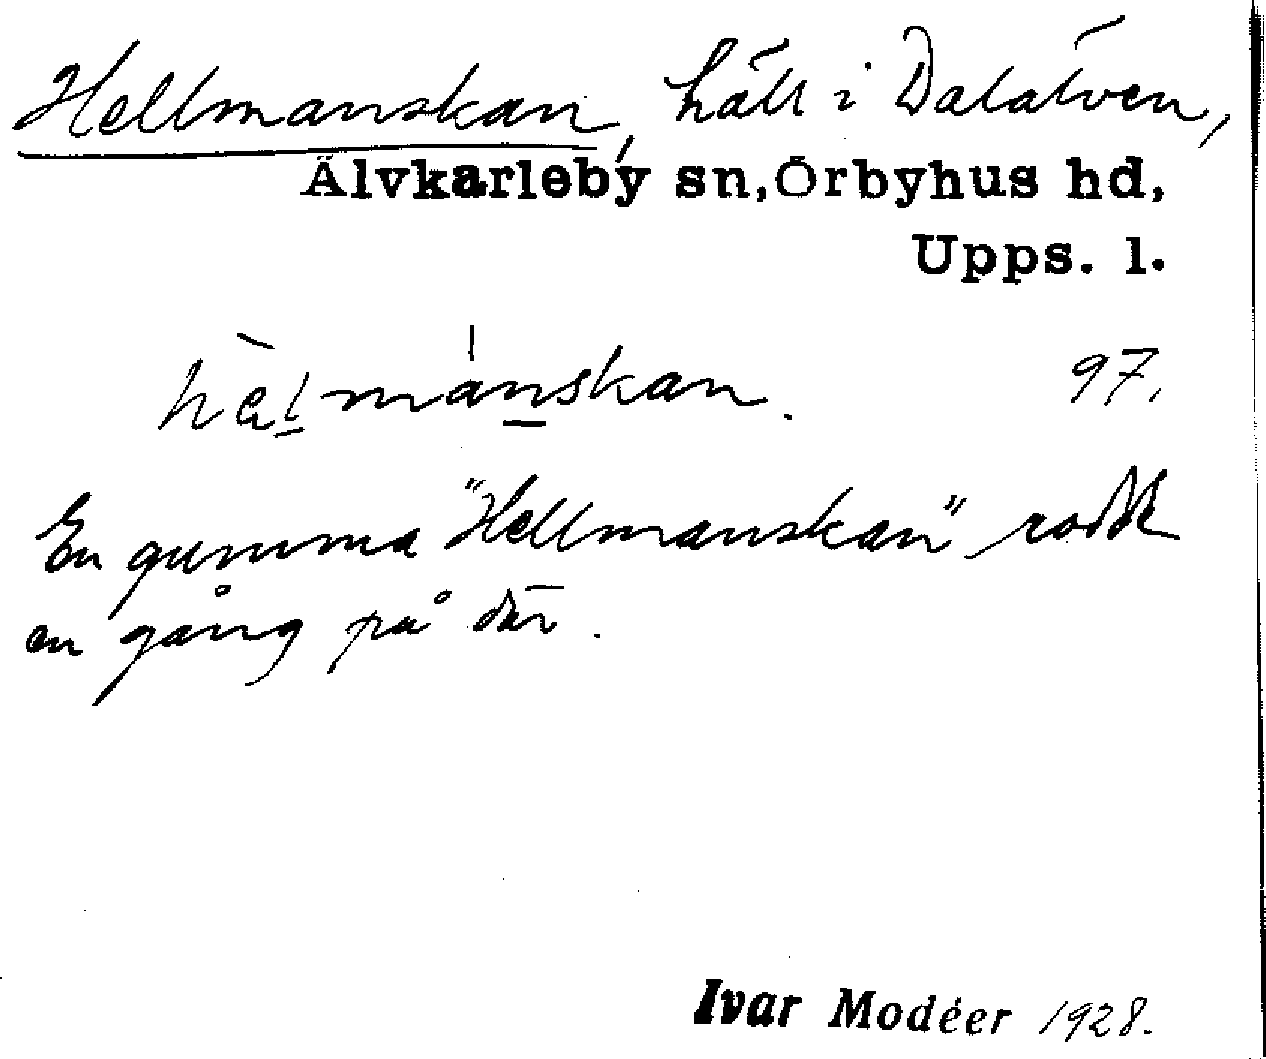 Hellmanskan, häll i Dalälven,
Älvkarleby sn, Örbyhus hd,
Upps. l.
hælmánskan. 97.
En gumma "Hellmanskan" rodde
en gång på där.
Ivar Modéer 1928.